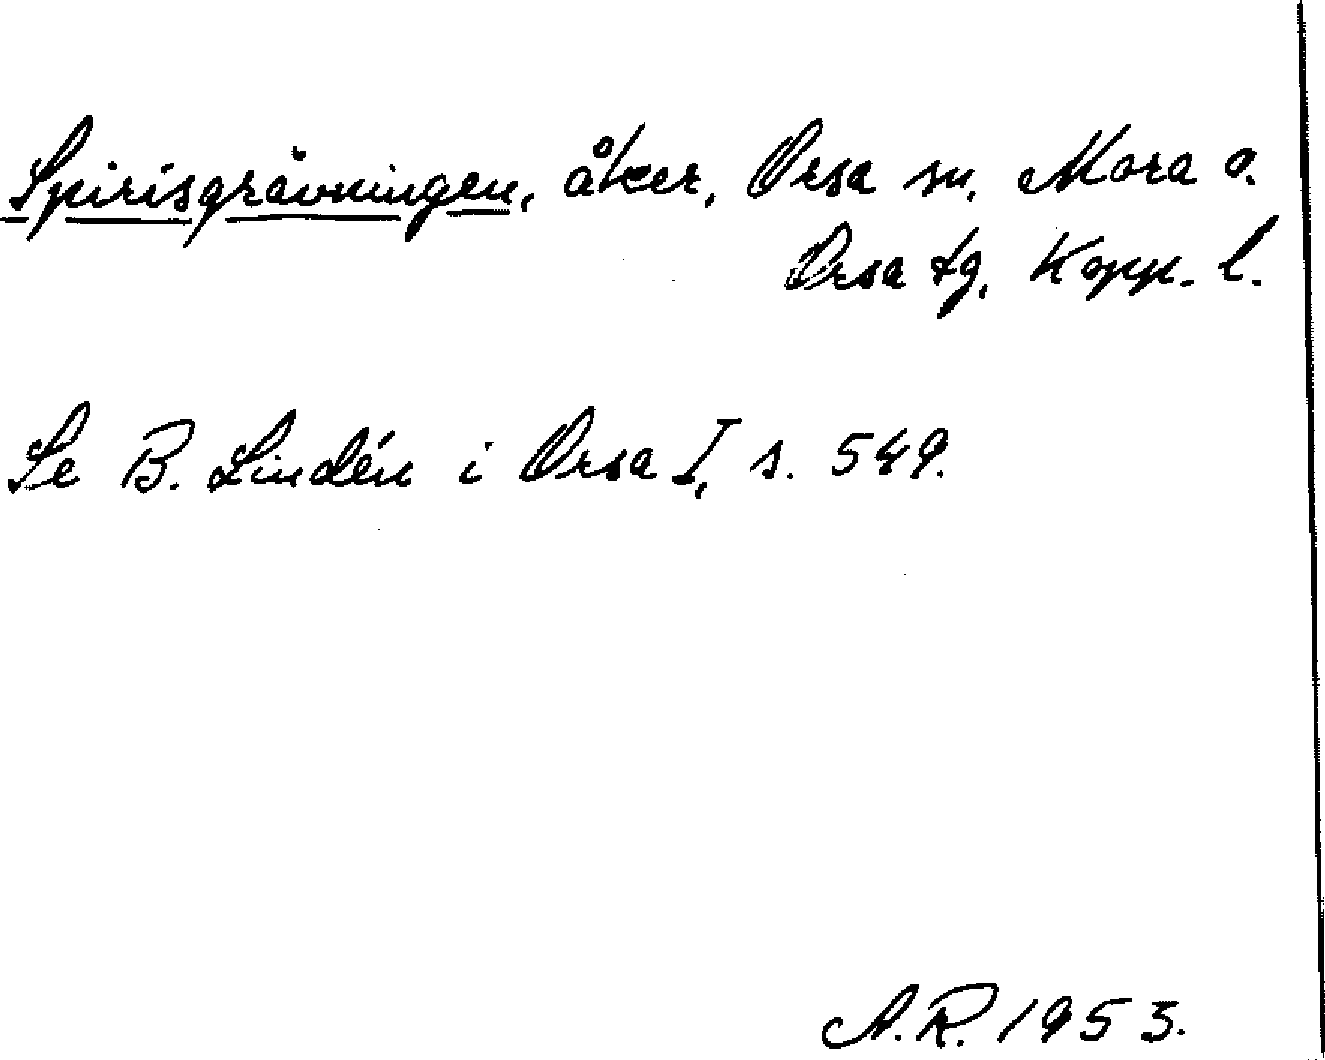 Spirisgrävningen, åker, Orsa sn, Mora o.
Orsa tg, Kopp. l.
Se B. Lindén i Orsa I, s. 549.
A.R. 1953.